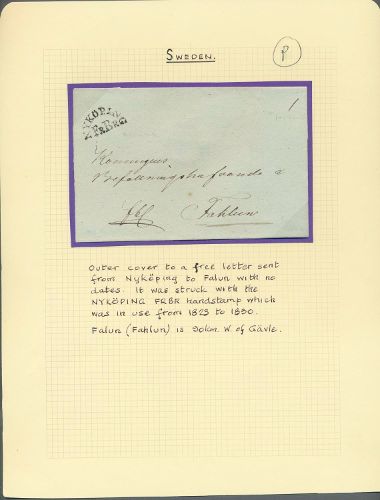 SWEDEN.
P
1
NYKÖPING
FRBRG
Konungens
Befallningshafvande i
Fahlun
Outer cover to a free letter sent
from Nyköping to Falun with no
dates. It was struck with the
NYKÖPING FRBR handstamp which
was in use from 1823 to 1830.
Falun (Fahlun) is 90km W. of Gävle.